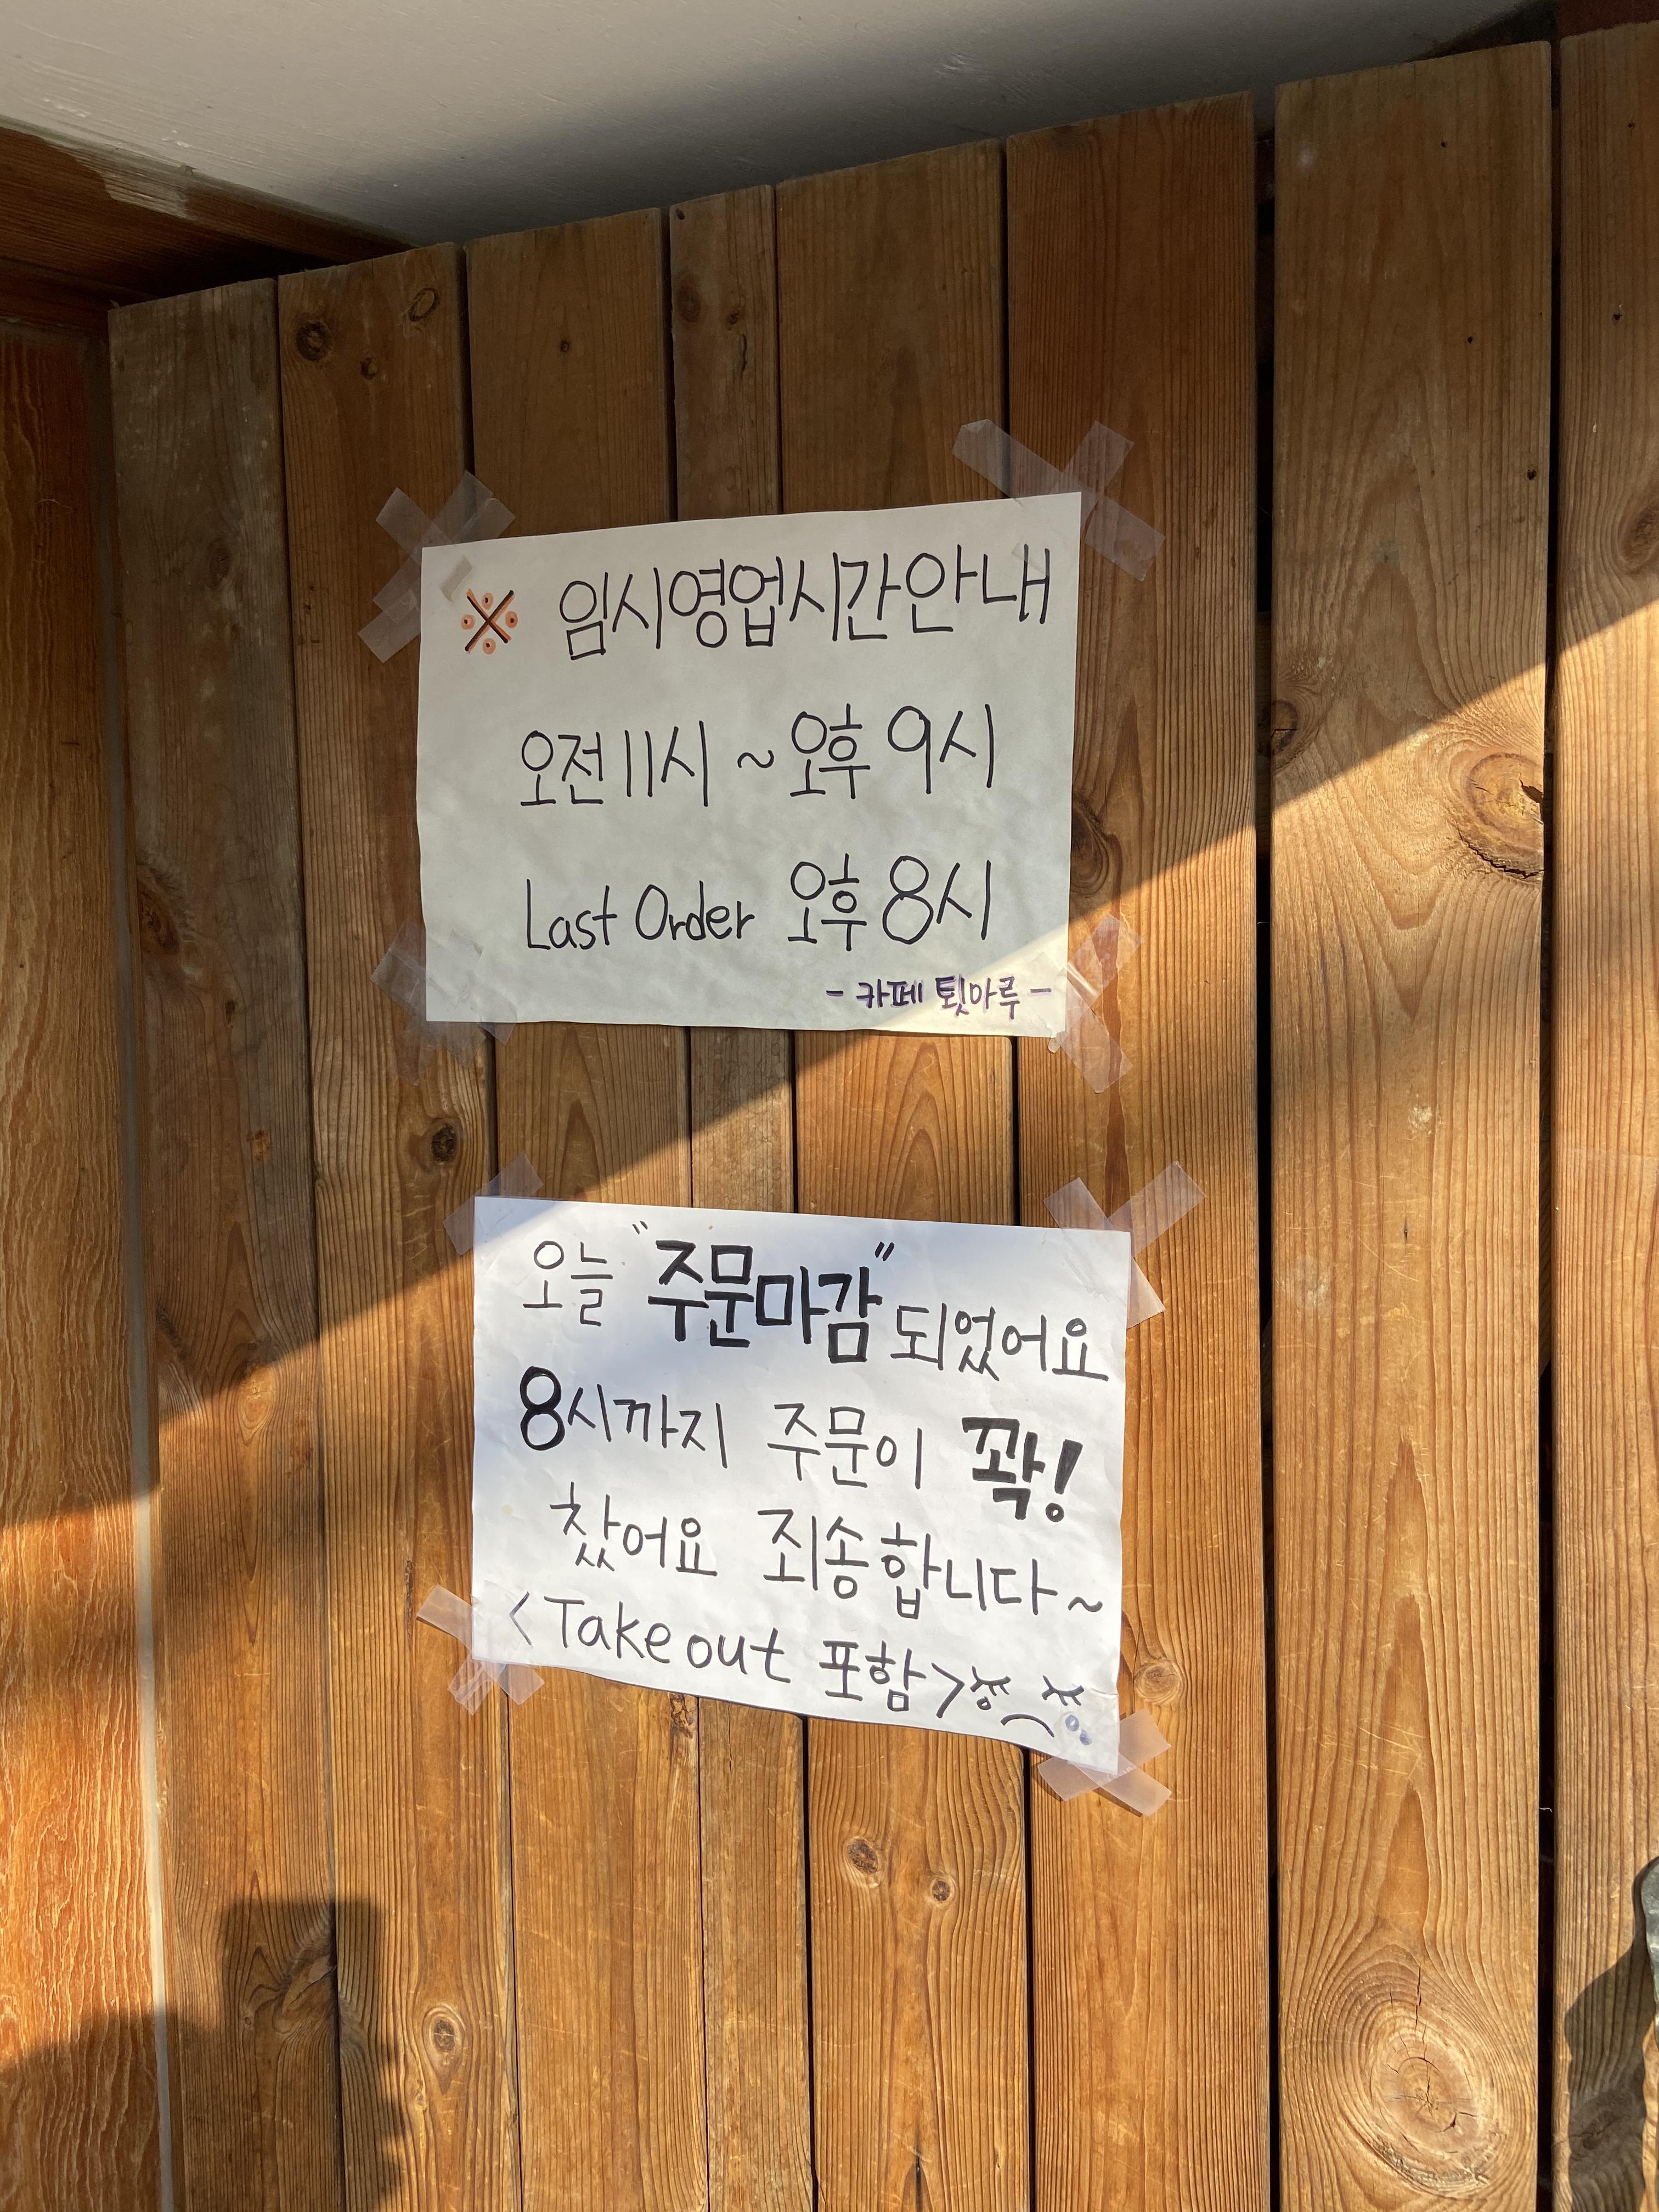 ※ 임시영업시간안내
오전 11시 ~ 오후 9시
Last Order 오후 8시
- 카페 툇마루 -
오늘 "주문마감" 되었어요
8시까지 주문이 꽉!
찼어요 죄송합니다~
<Take out 포함>